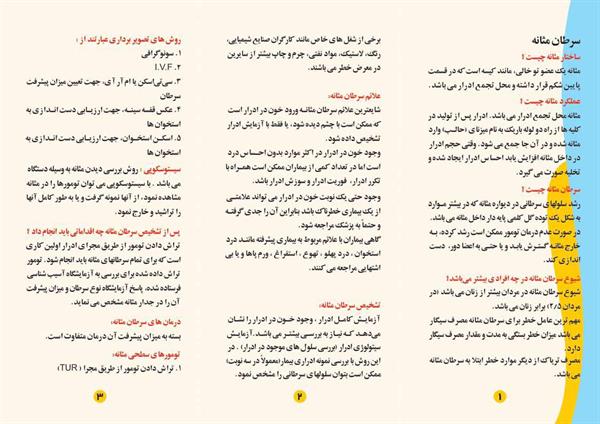 سرطان مثانه
ساختار مثانه چیست !
مثانه یک عضو تو خالی، مانند کیسه است که در قسمت
پایین شکم قرار داشته و محل تجمع ادرار می باشد.
عملکرد مثانه چیست !
مثانه محل تجمع ادرار می باشد. ادرار پس از تولید در
کلیه ها از راه دو لوله باریک به نام میزنای (حالب) وارد
مثانه شده و در آن جا جمع می شود. وقتی حجم ادرار
در داخل مثانه افزایش یابد احساس ادرار ایجاد شده و
تخلیه صورت می گیرد.
سرطان مثانه چیست !
رشد سلولهای سرطانی در دیواره مثانه که در بیشتر موارد
به شکل یک توده گل کلمی پایه دار داخل مثانه می باشد.
در صورت عدم درمان تومور ممکن است رشد کرده، به
خارج مثانه گسترش یابد و یا حتی به اعضا دور، دست
اندازی کند.
شیوع سرطان مثانه در چه افرادی بیشتر می باشد!
شیوع سرطان مثانه در مردان بیشتر از زنان می باشد (در
مردان ۲/۵) برابر زنان می باشد.
مهم ترین عامل خطر برای سرطان مثانه مصرف سیگار
می باشد میزان خطر بستگی به مدت و مقدار مصرف سیگار
دارد.
مصرف تریاک از دیگر موارد خطر ابتلا به سرطان مثانه
می باشد.
۱
برخی از شغل های خاص مانند کارگران صنایع شیمیایی،
رنگ، لاستیک، مواد نفتی، چرم و چاپ بیشتر از سایرین
در معرض خطر می باشند.
علائم سرطان مثانه:
شایعترین علائم سرطان مثانه ورود خون در ادرار است
که ممکن است با چشم دیده شود، یا فقط با آزمایش ادرار
تشخیص داده شود.
وجود خون در ادرار در اکثر موارد بدون احساس درد
است اما در تعداد کمی از بیماران ممکن است همراه با
تکرر ادرار، فوریت ادرار و سوزش ادرار باشد.
وجود حتی یک نوبت خون در ادرار می تواند علامتی
از یک بیماری خطرناک باشد بنابراین آن را جدی گرفته
و حتماً به پزشک مراجعه شود.
گاهی بیماران با علائم مربوط به بیماری پیشرفته مانند درد
استخوان، درد پهلو، تهوع، استفراغ، ورم پاها و یا بی
اشتهایی مراجعه می کنند.
تشخیص سرطان مثانه:
آزمایش کامل ادرار، وجود خون در ادرار را نشان
می دهد که نیاز به بررسی بیشتر می باشد.
سیتولوژی ادرار (بررسی سلول های موجود در ادرار).
این روش با بررسی نمونه ادراری بیمار(معمولاً در سه نوبت)
ممکن است بتوان سلولهای سرطانی را مشخص نمود.
۲
روش های تصویر برداری عبارتند از :
۱. سونوگرافی
۲. I.V.F
۳. سی تی اسکن یا ام آر آی، جهت تعیین میزان پیشرفت
سرطان
۴. عکس قفسه سینه، جهت ارزیابی دست اندازی به
استخوان ها
۵. اسکن استخوان، جهت ارزیابی دست اندازی به
استخوان ها
سیستوسکوپی : روش بررسی دیدن مثانه به وسیله دستگاه
می باشد . با سیستوسکوپی می توان تومورها را در مثانه
مشاهده نمود، از آنها نمونه گرفت و یا به طور کامل آنها
را تراشید و خارج نمود.
پس از تشخیص سرطان مثانه چه اقداماتی باید انجام داد !
تراش دادن تومور از طریق مجرای ادرار اولین کاری
است که برای تمام سرطانهای مثانه باید انجام شود. تومور
تراش داده شده برای بررسی به آزمایشگاه آسیب شناسی
فرستاده شده، پاسخ آزمایشگاه نوع سرطان و میزان پیشرفت
آن را در جدار مثانه مشخص می نماید.
درمان های سرطان مثانه:
بسته به میزان پیشرفت آن درمان متفاوت است.
تومورهای سطحی مثانه:
۱. تراش دادن تومور از طریق مجرا ( TUR)
۳